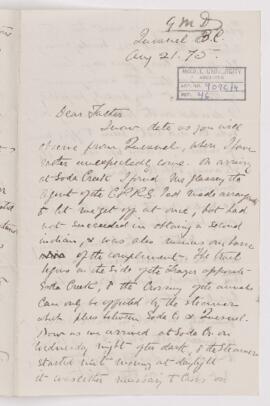 G M D
Quesnel B.C.
Aug 21. 75.
McGILL UNIVERSITY
ARCHIVES
ACC. NO. 909C/4
REF. 46
Dear Father
I now date as you will
observe from Quesnel, where I have
rather unexpectedly come. On arriving
at Soda Creek I found Mr
agent of the C.P.R.S. had made
to let me get off at once, but had
not succeeded in obtaining a second
indian, & was also minus one horse
of the complement. The trail
begins on the side of the Fraser opposite
Soda Creek, & the crossing of the animals
can only be effected by the steamer
which plies between Soda Ck & Quesnel.
Now as we arrived at Soda Ck on
Wednesday night after dark, & the steamer
started next morning at daylight
it was necessary to cross on